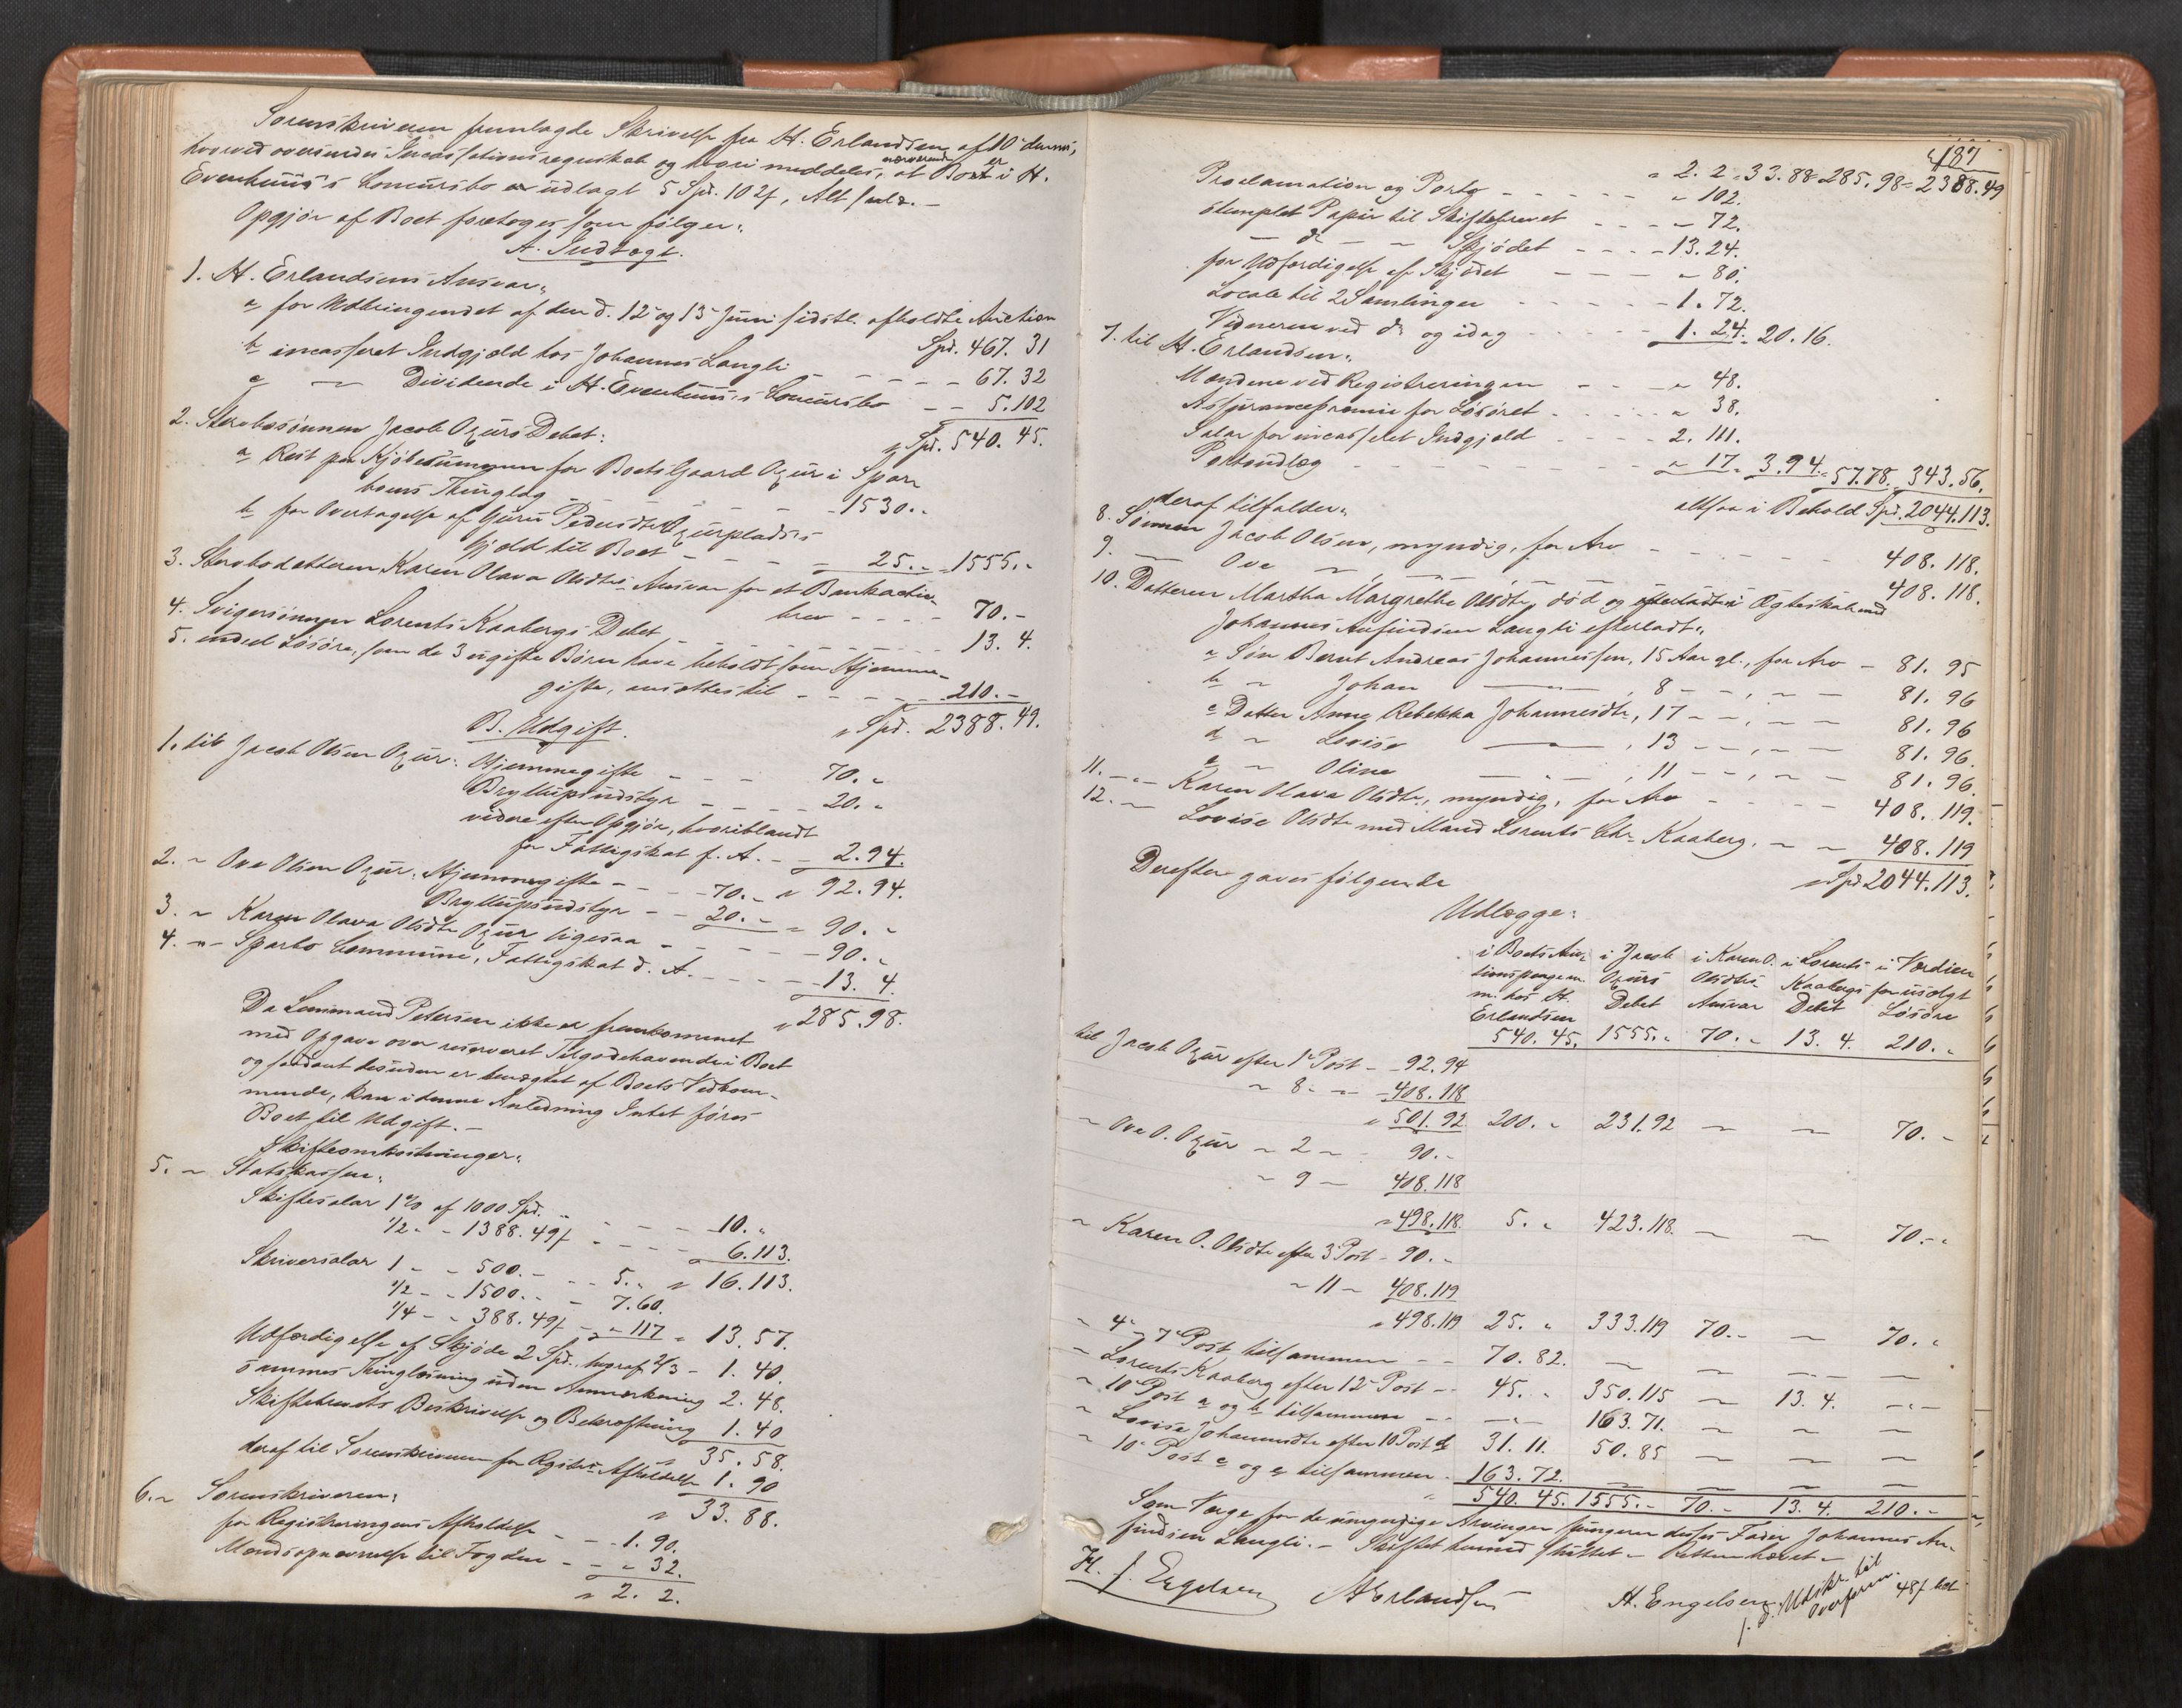 Sorenskriveren fremlagde Skrivelse fra H. Erlandsen af 10 dennes,
hvorved oversendes Incassationsregnskab og hvori meddeles, at nærværende Bo er i H.
Evenhuus's Concursbo udlagt 5 Spd. 102 f, Alt saal. –
Opgjør af Boet foretoges som følger:
A. Indtægt.
1. H. Erlandsens Ansvar:
a for Udbringendet af den d. 12 og 13 Juni sidstl. afholdte Auction
Spd. 467. 31
b incasseret Indgjæld hos Johannes Langli - - - - - 67. 32
c — Dividende i H. Evenhuus's Concursbo - - 5. 102
" Spd. 540. 45.
2. Stervbosønnen Jacob Oxurs Debet:
a Rest paa Kjøbesummen for Boets Gaard Oxur i Spar-
boens Thinglag - - - - - 1530. "
b for Overtagelse af Guru Pedersdtr Oxurplads's
Gjæld til Boet - - - - 25. " = 1555. "
3. Stervbodatteren Karen Olava Olsdtrs Ansvar for et Bankactie-
brev - - - - 70. -
4. Svigersønnen Lorents Kaabergs Debet - - - - - - 13. 4.
5. endeel Løsøre, som de 3 ugifte Børn have beholdt som Hjemme-
gifte, ansættes til - - - - - 210. -
" Spd. 2388. 49.
B. Udgift.
1. til Jacob Olsen Oxur: Hjemmegifte - - - 70. "
Bryllupsudstyr - - - - 20. "
videre efter Opgjør, hvoriblandt
for Fattigskat f. A. - - 2. 94.
" 92. 94.
2. " Ove Olsen Oxur: Hjemmegifte - - - 70. "
Bryllupsudstyr - - 20. " = 90. "
3. " Karen Olava Olsdtr Oxur ligesaa - - - - - 90. "
4. " Sparbo Commune, Fattigskat d. A. - - - - 13. 4.
" 285. 98.
Da Lensmand Petersen ikke er fremkommet
med Opgave over reserveret Tilgodehavende i Boet
og saadant desuden er benægtet af Boets Vedkom-
mende, kan i denne Anledning Intet føres
Boet til Udgift. -
Skifteomkostninger:
5. " Statskassen:
Skiftesalar 1 % af 1000 Spd. - - - - 10. "
1/2 - - 1388. 49 f - - - - 6. 113.
" 16. 113.
Skriversalar 1 - - 500. - - - 5. "
1/2 - - 1500. - - 7. 60.
1/4 - - 388. 49 f - - " 117 = 13. 57.
Udfærdigelse af Skjøde 2 Spd. hvoraf 2/3 - 1. 40.
sammes Thinglæsning uden Anmærkning 2. 48.
Skiftebrevets Beskrivelse og Bekræftning 1. 40
35. 58.
deraf til Sorenskriveren for Registr. Afholdelse 1. 90
" 33. 88.
6. " Sorenskriveren:
for Registreringens Afholdelse - - 1. 90.
Mandsopnævnelse til Fogden - - " 32.
" 2. 2.
487
" 2. 2 = 33. 88 = 285. 98 = 2388. 49
Proclamation og Porto - - - - - " 102.
stemplet Papir til Skiftebrevet - - - - " 72.
— do — — Skjødet - - - - 13. 24.
for Udfærdigelse af Skjødet - - - - " 80.
Locale til 2 Samlinger - - - - - 1. 72.
Vidnerne ved do og idag - - - - - 1. 24. = 20. 16.
7. til H. Erlandsen:
Mændene ved Registreringen - - - " 48.
Assurancepræmie for Løsøret - - - - - " 38.
Salar for incasseret Indgjæld - - - - 2. 111.
Portoudlæg - - - - - - - - " 17 = 3. 94. = 57. 78. = 343. 56.
altsaa i Behold Spd. 2044. 113.
deraf tilfalder:
8. Sønnen Jacob Olsen, myndig, for Arv - - - - - - 408. 118.
9. — Ove — , — — — — — 408. 118.
10. Datteren Martha Margrethe Olsdtr, død og efterladte i Ægteskab med
Johannes Anfindsen Langli efterladt:
a Søn Bernt Andreas Johannessen, 15 Aar gl., for Arv - 81. 95
b " Johan — , 8 - - , - - 81. 96
c Datter Anne Rebekka Johannesdtr, 17 - - , - - 81. 96
d " Lovise — , 13 - - , - - 81. 96.
e " Oline — , 11 - - , - - 81. 96.
11. - " - Karen Olava Olsdtr, myndig, for Arv - - - - 408. 119.
12. — Lovise Olsdtr med Mand Lorents Chr. Kaaberg, - - 408. 119
" Spd 2044. 113.
Derefter gaves følgende
Udlægge:
i Boets Auc- i Jacob i Karen O. i Lorents i Værdien
tionspengem. Oxurs Olsdtrs Kaabergs for usolgt
m. hos H. Debet Ansvar Debet Løsøre
Erlandsen
540. 45. 1555. " 70. " 13. 4. 210. "
til Jacob Oxur efter 1e Post - - 92. 94
" 8 - " - 408. 118
" 501. 92 200. " 231. 92 — — 70. -
" Ove O. Oxur " 2 " - 90. -
" 9 — 408. 118
" 498. 118. 5. " 423. 118. — — 70. "
" Karen O. Olsdtr efter 3 Post - 90. -
" 11 - 408. 119
" 498. 119 25. " 333. 119 70. - — 70. "
" 4 - 7 Post tilsammen - - 70. 82. — — — —
" Lorents Kaaberg efter 12 Post - - 45. " 350. 115 — 13. 4. - " -
" 10 Post a og b tilsammen - - - " - 163. 71. — — —
" Lovise Johannesdtr efter 10 Post d 31. 11. 50. 85 — — —
" 10 Post c og e tilsammen - 163. 72. — — — —
" 540. 45. 1555. - 70. - 13. 4. 210. -
Som Værge for de umyndige Arvinger fungerer disses Fader Johannes An-
findsen Langli. - Skiftet hermed sluttet - Retten hævet -
H. J. Engelsen A Erlandsen H. Engelsen
f. d. Udskr. til
Overform.
48 f bet